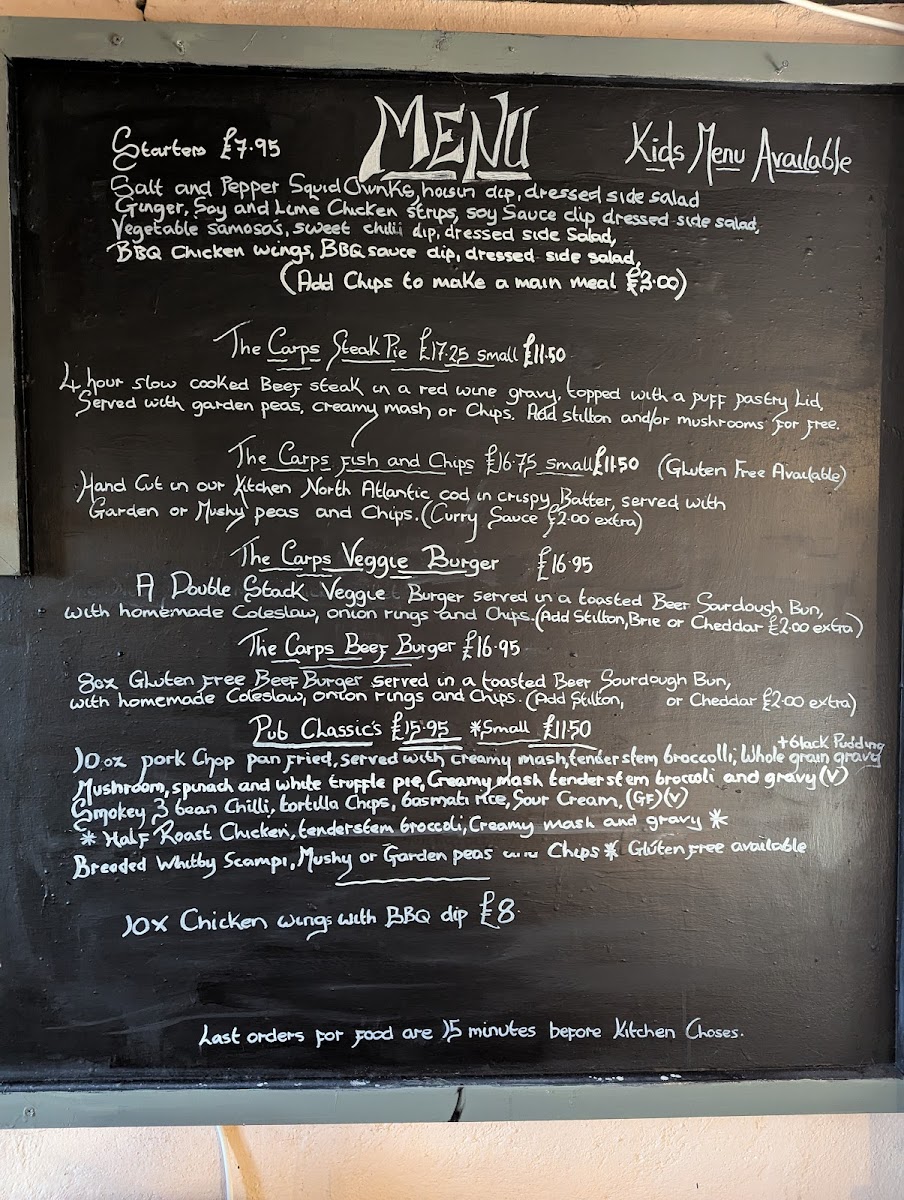 MENU
Starters £7.95
Kids Menu Available
Salt and Pepper Squid Chunks, hoisin dip, dressed side salad
Ginger, Soy and Lime Chicken strips, soy Sauce dip dressed side salad,
Vegetable samosas, sweet chilli dip, dressed side Salad,
BBQ Chicken wings, BBQ sauce dip, dressed side salad,
(Add Chips to make a main meal £3.00)
The Carps Steak Pie £17.25 small £11.50
4 hour slow cooked Beef steak in a red wine gravy, topped with a puff pastry Lid,
Served with garden peas, creamy mash or Chips. Add stilton and/or mushrooms for free.
The Carps Fish and Chips £16.75 small £11.50 (Gluten Free Available)
Hand Cut in our Kitchen North Atlantic cod in crispy Batter, served with
Garden or Mushy peas and Chips. (Curry Sauce £2.00 extra)
The Carps Veggie Burger £16.95
A Double Stack Veggie Burger served in a toasted Beer Sourdough Bun,
with homemade Coleslaw, onion rings and Chips. (Add Stilton, Brie or Cheddar £2.00 extra)
The Carps Beef Burger £16.95
8oz Gluten Free Beef Burger served in a toasted Beer Sourdough Bun,
with homemade Coleslaw, onion rings and Chips. (Add Stilton, or Cheddar £2.00 extra)
Pub Classic's £15.95 *Small £11.50
+black Pudding
10oz pork Chop pan fried, served with creamy mash, tenderstem broccolli, Whole grain gravy
Mushroom, spinach and white truffle pie, Creamy mash tenderstem broccoli and gravy (V)
Smokey 3 bean Chilli, tortilla Chips, basmati rice, Sour Cream, (GF)(V)
* Half Roast Chicken, tenderstem broccoli, Creamy mash and gravy *
Breaded Whitby Scampi, Mushy or Garden peas and Chips * Gluten Free available
10x Chicken wings with BBQ dip £8
Last orders for food are 15 minutes before Kitchen Closes.